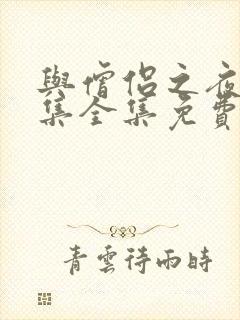 與僧侶之夜
集全集免費
青雲待雨時